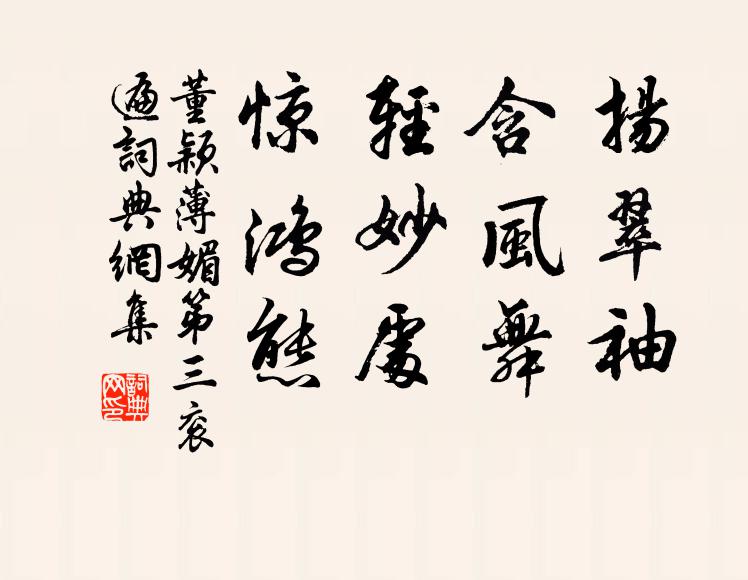 揚翠袖
含風舞
輕妙處
惊鴻態
董穎薄媚第三衮
遍詞典網集
詞典
网印